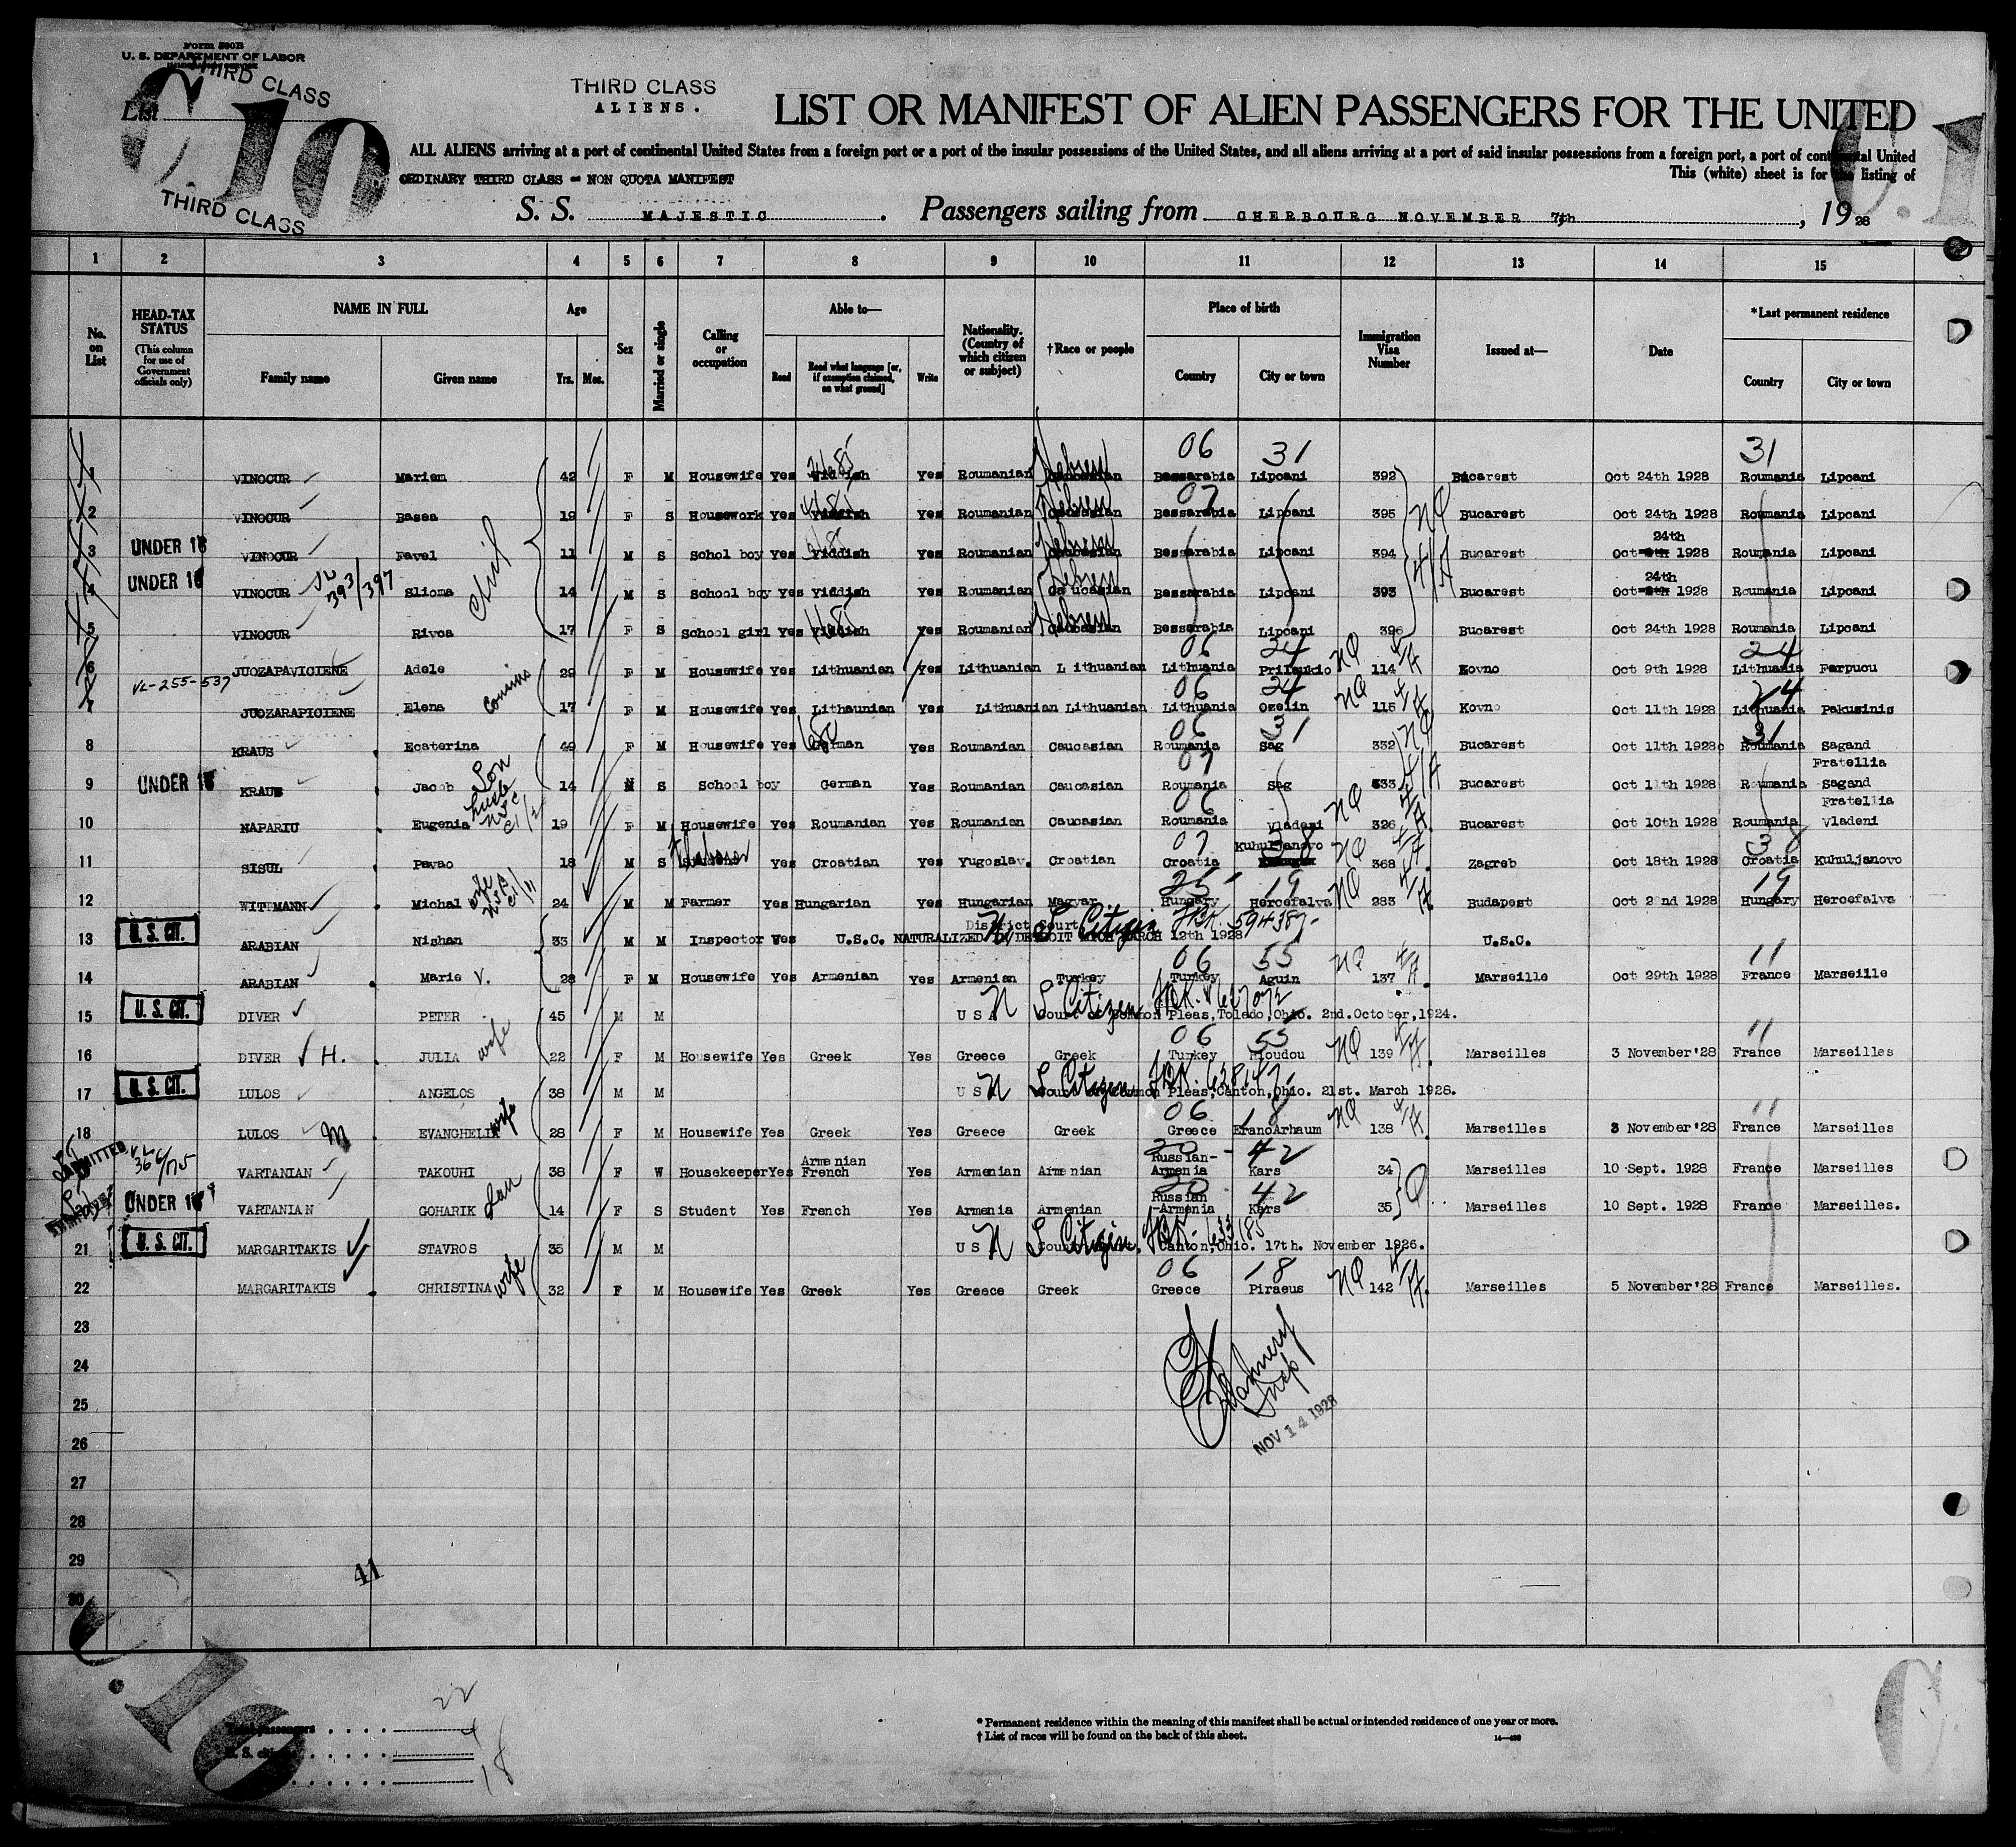 Form 500B
U. S. DEPARTMENT OF LABOR
IMMIGRATION SERVICE
THIRD CLASS
List
C 10
THIRD CLASS
THIRD CLASS
ALIENS.
LIST OR MANIFEST OF ALIEN PASSENGERS FOR THE UNITED
ALL ALIENS arriving at a port of continental United States from a foreign port or a port of the insular possessions of the United States, and all aliens arriving at a port of said insular possessions from a foreign port, a port of continental United
ORDINARY THIRD CLASS - NON QUOTA MANIFEST
This (white) sheet is for the listing of
S. S. MAJESTIC. Passengers sailing from CHERBOURG NOVEMBER 7th, 1928
1 2 3 4 5 6 7 8 9 10 11 12 13 14 15
No. on List
HEAD-TAX STATUS (This column for use of Government officials only)
NAME IN FULL Family name Given name
Age Yrs. Mos.
Sex
Married or single
Calling or occupation
Able to— Read Read what language [or, if exemption claimed, on what ground] Write
Nationality. (Country of which citizen or subject)
†Race or people
Place of birth Country City or town
Immigration Visa Number
Issued at—
Date
*Last permanent residence Country City or town
06 31 31
1 VINOCUR Mariem 42 F M Housewife Yes Yiddish Yes Roumanian Hebrew Bessarabia Lipcani 392 Bucarest Oct 24th 1928 Roumania Lipcani
07
2 VINOCUR Basea 19 F S Housework Yes Yiddish Yes Roumanian Hebrew Bessarabia Lipcani 395 NQ Bucarest Oct 24th 1928 Roumania Lipcani
24th
3 UNDER 16 VINOCUR Favel 11 M S Schol boy Yes Yiddish Yes Roumanian Hebrew Bessarabia Lipcani 394 4/A Bucarest Oct 1928 Roumania Lipcani
24th
4 UNDER 16 VINOCUR 393/397 Slioma 14 M S School boy Yes Yiddish Yes Roumanian Hebrew Bessarabia Lipcani 393 Bucarest Oct 1928 Roumania Lipcani
5 VINOCUR Rivca 17 F S School girl Yes Yiddish Yes Roumanian Hebrew Bessarabia Lipcani 396 Bucarest Oct 24th 1928 Roumania Lipcani
06 24 24
6 JUOZAPAVICIENE Adele 29 F M Housewife Yes Lithuanian Yes Lithuanian Lithuanian Lithuania NQ 114 4/A Kovno Oct 9th 1928 Lithuania
VL-255-537 cousins
06 24 24
7 JUOZARAPICIENE Elena 17 F M Housewife Yes Lithaunian Yes Lithuanian Lithuanian Lithuania Ozelin NQ 115 4/A Kovno Oct 11th 1928 Lithuania Pakusinis
06 31 31
8 KRAUS Ecaterina 49 F M Housewife Yes German Yes Roumanian Caucasian Roumania Sag 332 NQ Bucarest Oct 11th 1928 Roumania Sagand
Fratellia
07
9 UNDER 16 KRAUS Jacob Son 14 M S School boy German Yes Roumanian Caucasian Roumania Sag 333 4/A Bucarest Oct 11th 1928 Roumania Sagand
Fratellia
06
10 NAPARIU Eugenia 19 F M Housewife Yes Roumanian Yes Roumanian Caucasian Roumania Vladeni NQ 326 4/A Bucarest Oct 10th 1928 Roumania Vladeni
07 Kuhuljanovo 38 38
11 SISUL Pavao 18 M S laborer Yes Croatian Yes Yugoslav. Croatian Croatia NQ 368 4/A Zagreb Oct 18th 1928 Croatia Kuhuljanovo
25 19 19
12 WITTMANN Michal wife 24 M M Farmer Yes Hungarian Yes Hungarian Magyar Hungary Hercefalva NQ 283 4/A Budapest Oct 22nd 1928 Hungary Hercefalva
District Court
13 U. S. CIT. ARABIAN Nishan 33 M M Inspector Yes U.S.C. NATURALIZED IN DETROIT MICH MARCH 12th 1928 U.S.C.
06 55 11
14 ARABIAN Marie V. 28 F M Housewife Yes Armenian Yes Armenian Turkey Turkey Aguin NQ 137 4/A Marseille Oct 29th 1928 France Marseille
15 U. S. CIT. DIVER PETER 45 M M U S A Citizen Court of Common Pleas, Toledo, Ohio. 2nd. October, 1924.
06 55 11
16 DIVER H. JULIA wife 22 F M Housewife Yes Greek Yes Greece Greek Turkey NQ 139 4/A Marseilles 3 November '28 France Marseilles
17 U. S. CIT. LULOS ANGELOS 38 M M U S Citizen Court of Common Pleas, Canton, Ohio. 21st. March 1928.
06 18 11
18 LULOS M EVANGHELIA wife 28 F M Housewife Yes Greek Yes Greece Greek Greece EranoArhaum NQ 138 4/A Marseilles 3 November '28 France Marseilles
ADMITTED VL 366/175 Armenian 20 Russian- 42
VARTANIAN TAKOUHI 38 F W Housekeeper Yes French Yes Armenian Armenian Armenia Kars 34 Q Marseilles 10 Sept. 1928 France Marseilles
20 Russian 42
UNDER 16 VARTANIAN GOHARIK dau 14 F S Student Yes French Yes Armenia Armenian -Armenia Kars 35 Marseilles 10 Sept. 1928 France Marseilles.
21 U. S. CIT. MARGARITAKIS STAVROS 35 M M U S Citizen Canton, Ohio. 17th. November 1926.
06 18
22 MARGARITAKIS CHRISTINA wife 32 F M Housewife Yes Greek Yes Greece Greek Greece Piraeus NQ 142 4/A Marseilles 5 November '28 France Marseilles.
23
24
25
26
27
28
29
30
NOV 14 1928
41
C. 10
22
4
18
* Permanent residence within the meaning of this manifest shall be actual or intended residence of one year or more.
† List of races will be found on the back of this sheet.